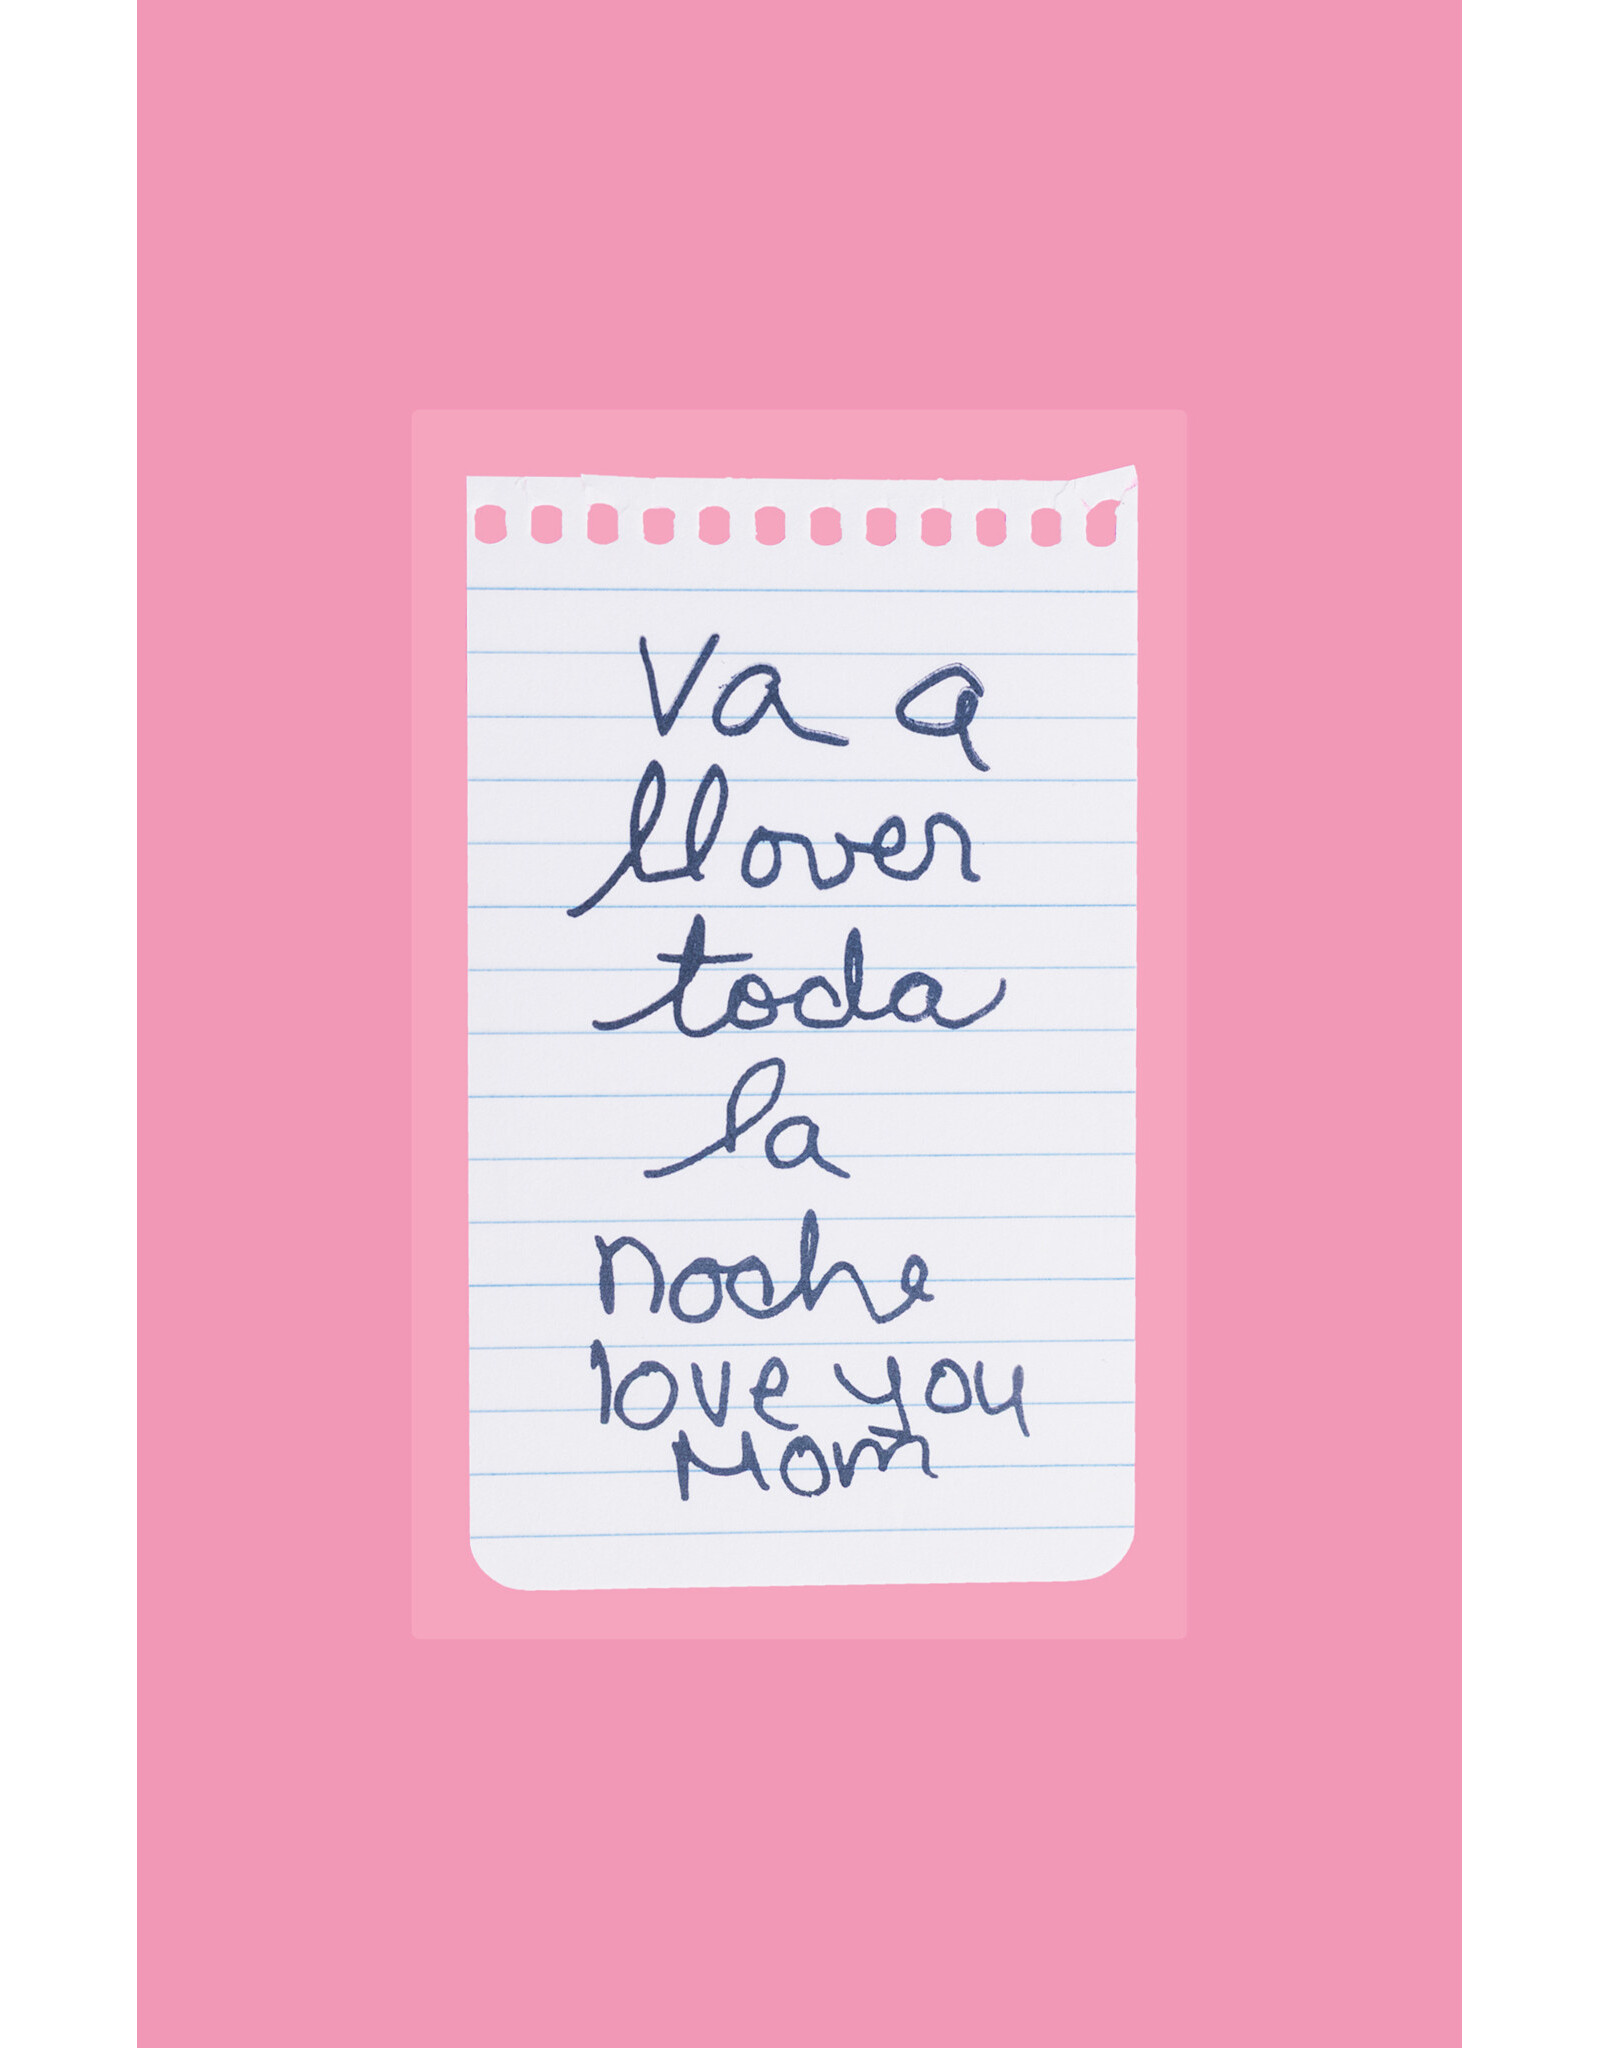 Va a
llover
toda
la
noche
love you
Mom